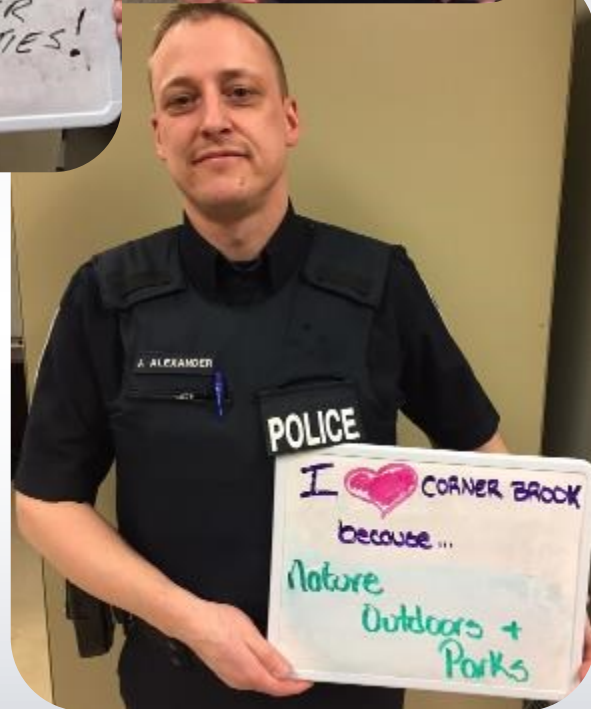 TIES!
J. ALEXANDER
POLICE
I ❤ CORNER BROOK
because...
Nature
Outdoors +
Parks